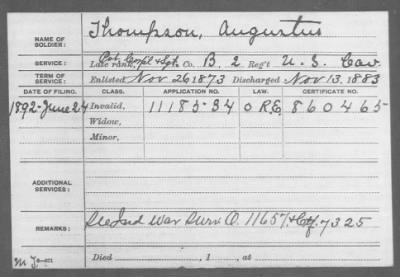 NAME OF SOLDIER: Thompson, Augustus
SERVICE: Late rank, Pvt. Corpl & Sgt. Co. B, 2 Reg't U.S. Cav.
TERM OF SERVICE: Enlisted Nov 26 1873 Discharged Nov 13, 1883
DATE OF FILING. CLASS. APPLICATION NO. LAW. CERTIFICATE NO.
1892-June 24 Invalid, 1118534 O R G, 860465
Widow,
Minor,
ADDITIONAL SERVICES:
REMARKS: See Ind War Surv O. 11657 & Ctf. 7325
Died , 1 , at